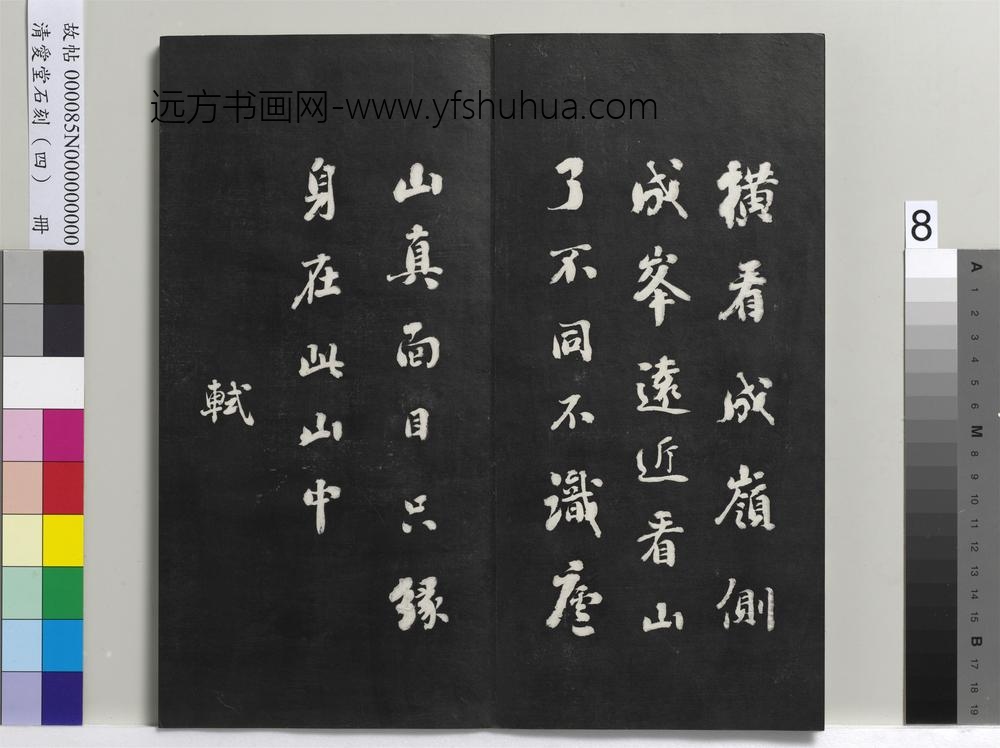 横看成嶺側
成峯遠近看山
了不同不識廬
山真面目只緣
身在此山中
軾
远方书画网-www.yfshuhua.com
故帖 000085N000000000
清愛堂石刻（四） 冊
8
A
1
2
3
4
5
6
M
8
9
10
11
12
13
14
15
B
17
18
19